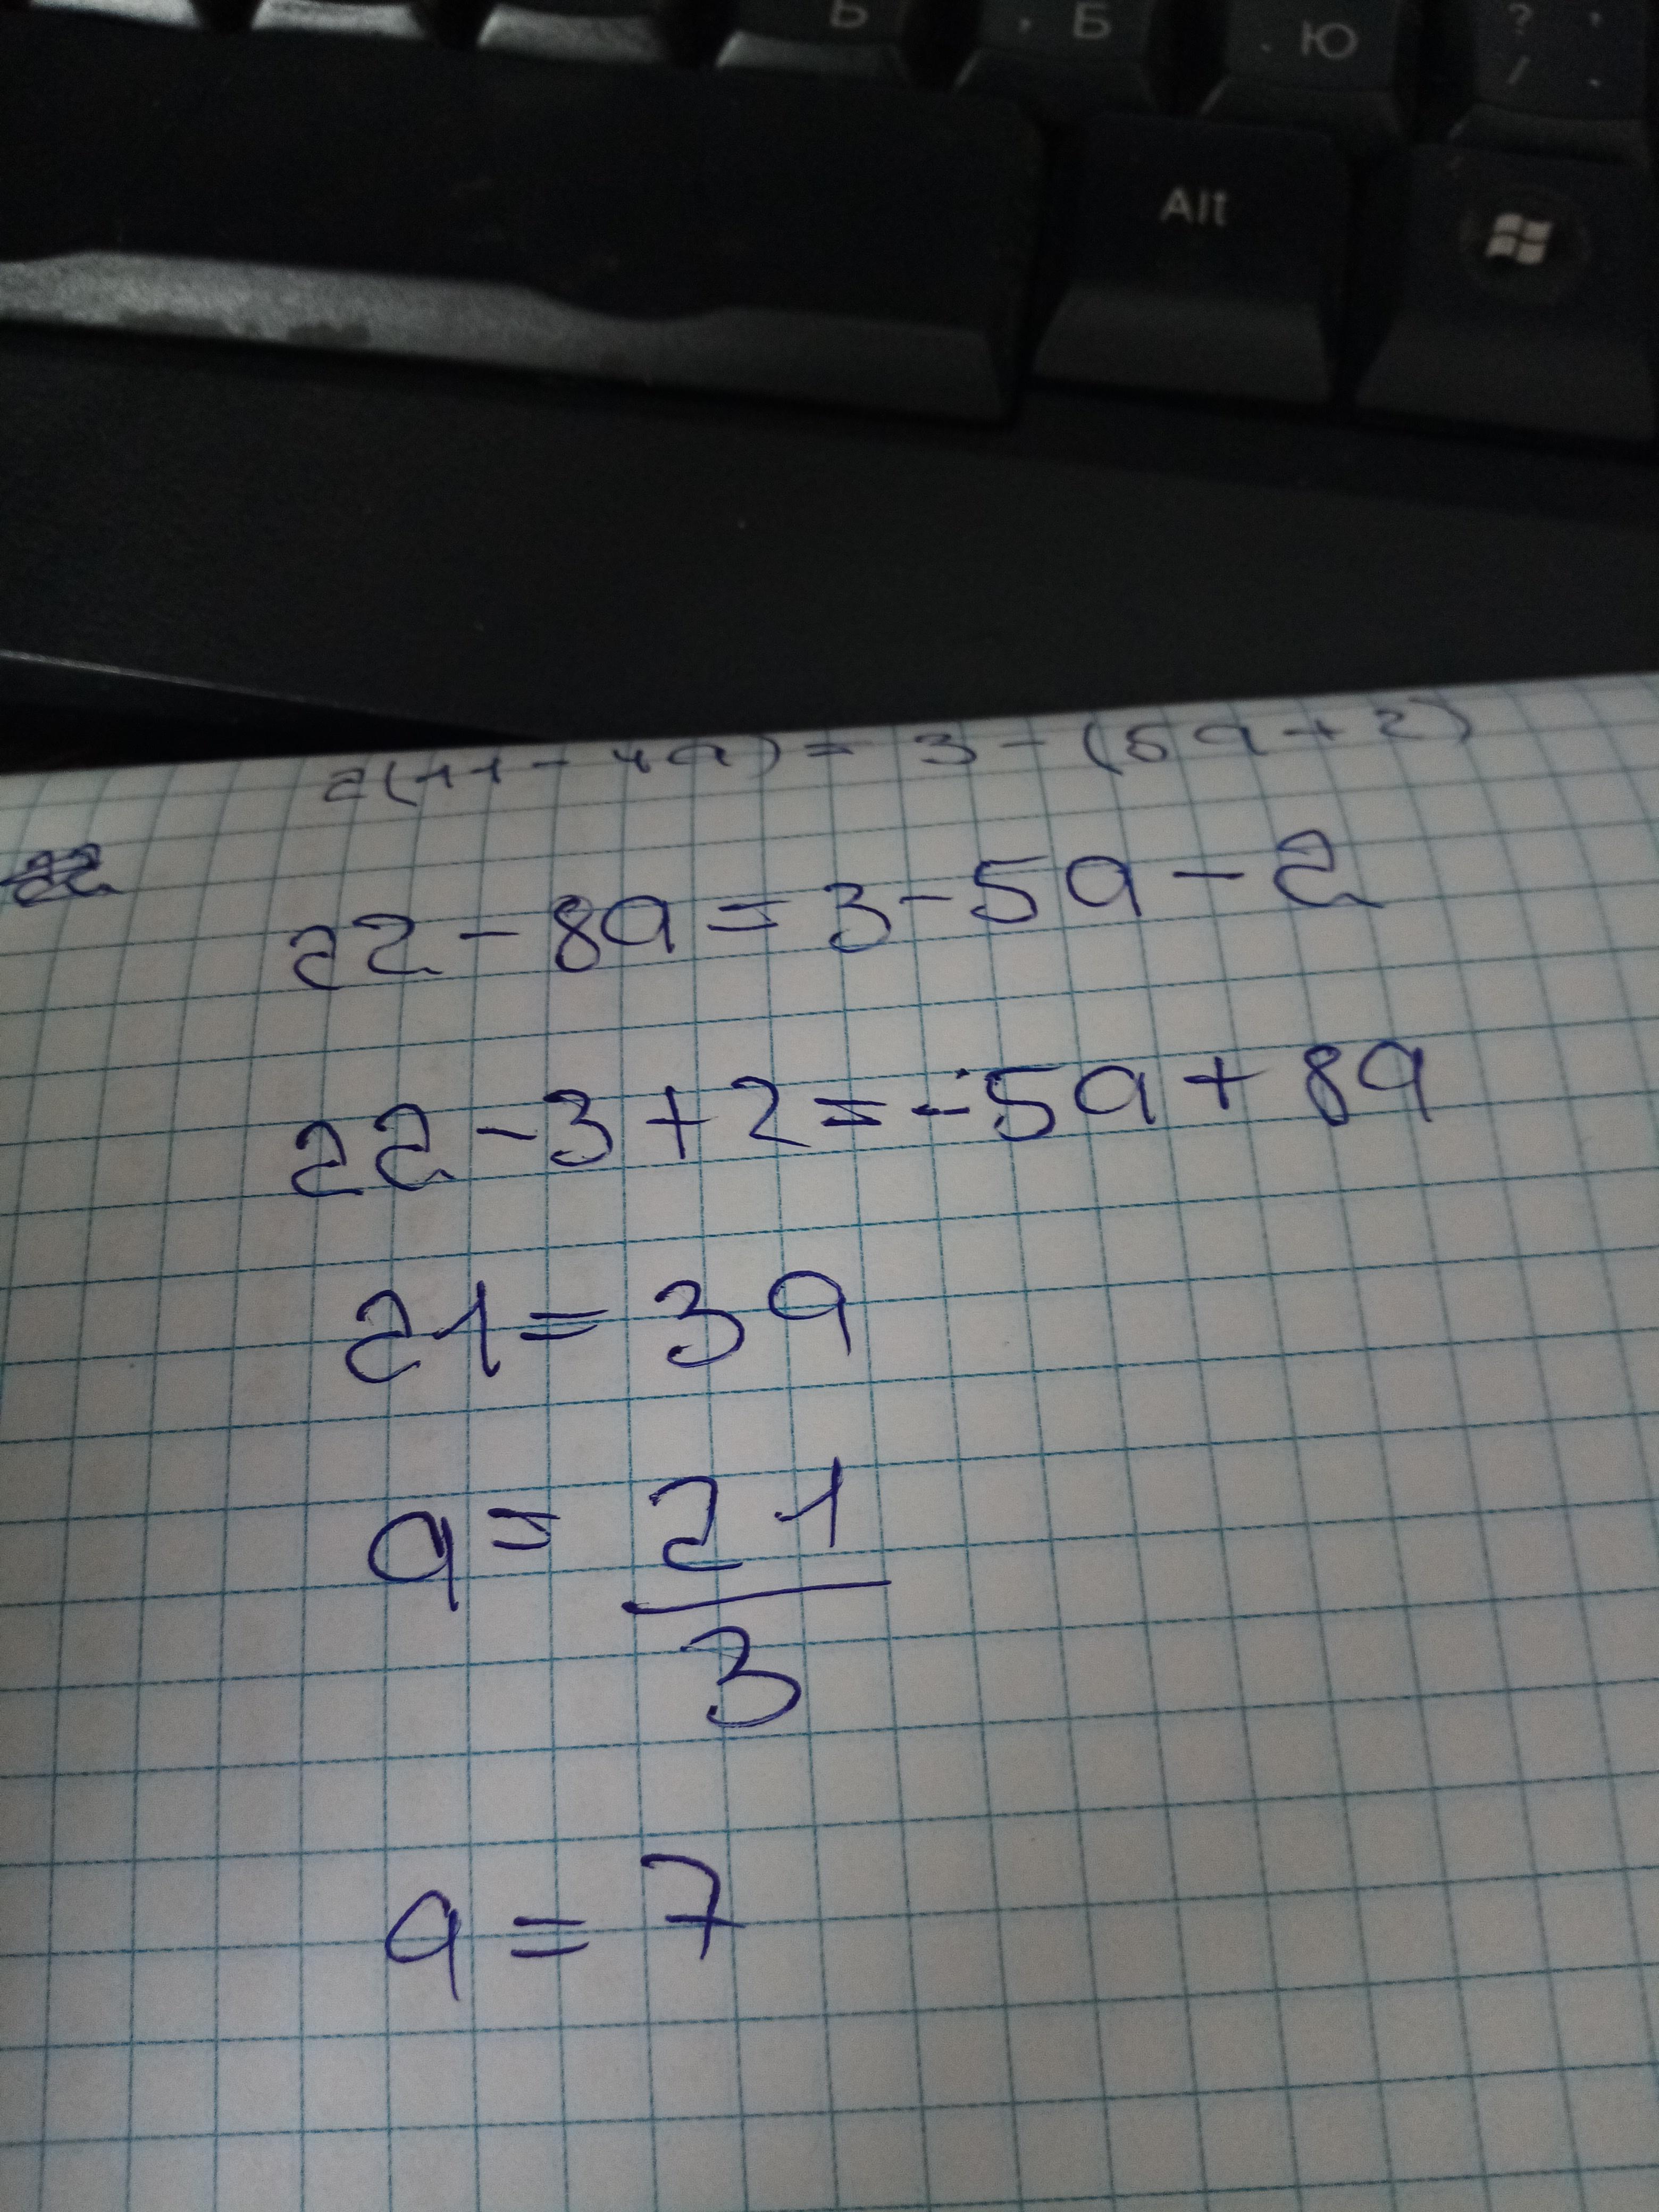 Ь , Б . Ю ? , / .
Alt
2(11-4a)=3-(5a+2)
22-8a=3-5a-2
22-3+2=-5a+8a
21=3a
a=21/3
a=7